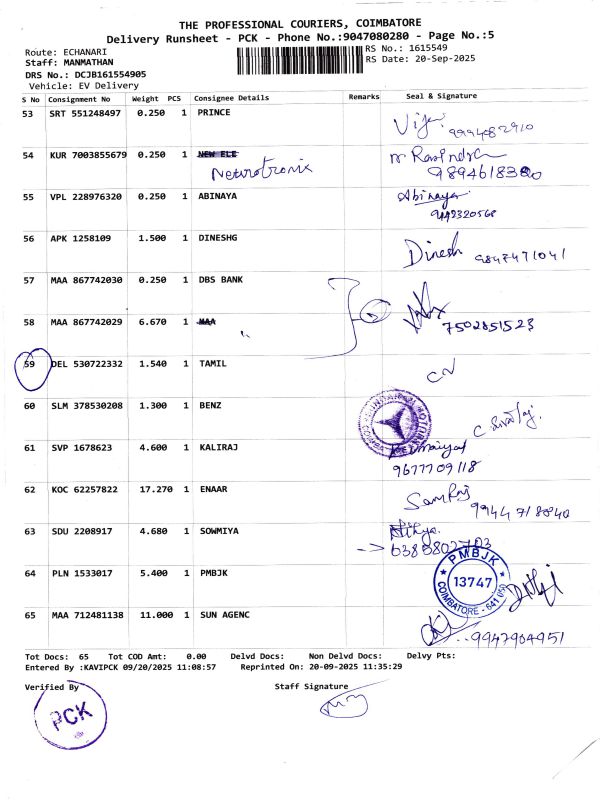 THE PROFESSIONAL COURIERS, COIMBATORE
Delivery Runsheet - PCK - Phone No.:9047080280 - Page No.:5
Route: ECHANARI
RS No.: 1615549
Staff: MANMATHAN
RS Date: 20-Sep-2025
DRS No.: DCJB161554905
Vehicle: EV Delivery
S No Consignment No Weight PCS Consignee Details Remarks Seal & Signature
53 SRT 551248497 0.250 1 PRINCE
9994082910
54 KUR 7003855679 0.250 1 NEW ELE
Neurotronix
9894618380
55 VPL 228976320 0.250 1 ABINAYA Abinaya
56 APK 1258109 1.500 1 DINESHG Dinesh 9847471041
57 MAA 867742030 0.250 1 DBS BANK
58 MAA 867742029 6.670 1 MAA
7502851523
59 DEL 530722332 1.540 1 TAMIL
60 SLM 378530208 1.300 1 BENZ
61 SVP 1678623 4.600 1 KALIRAJ
9677709118
62 KOC 62257822 17.270 1 ENAAR
63 SDU 2208917 4.680 1 SOWMIYA
64 PLN 1533017 5.400 1 PMBJK
PMBJK
13747
COIMBATORE
65 MAA 712481138 11.000 1 SUN AGENC
9947904951
Tot Docs: 65 Tot COD Amt: 0.00 Delvd Docs: Non Delvd Docs: Delvy Pts:
Entered By :KAVIPCK 09/20/2025 11:08:57 Reprinted On: 20-09-2025 11:35:29
Verified By Staff Signature
PCK